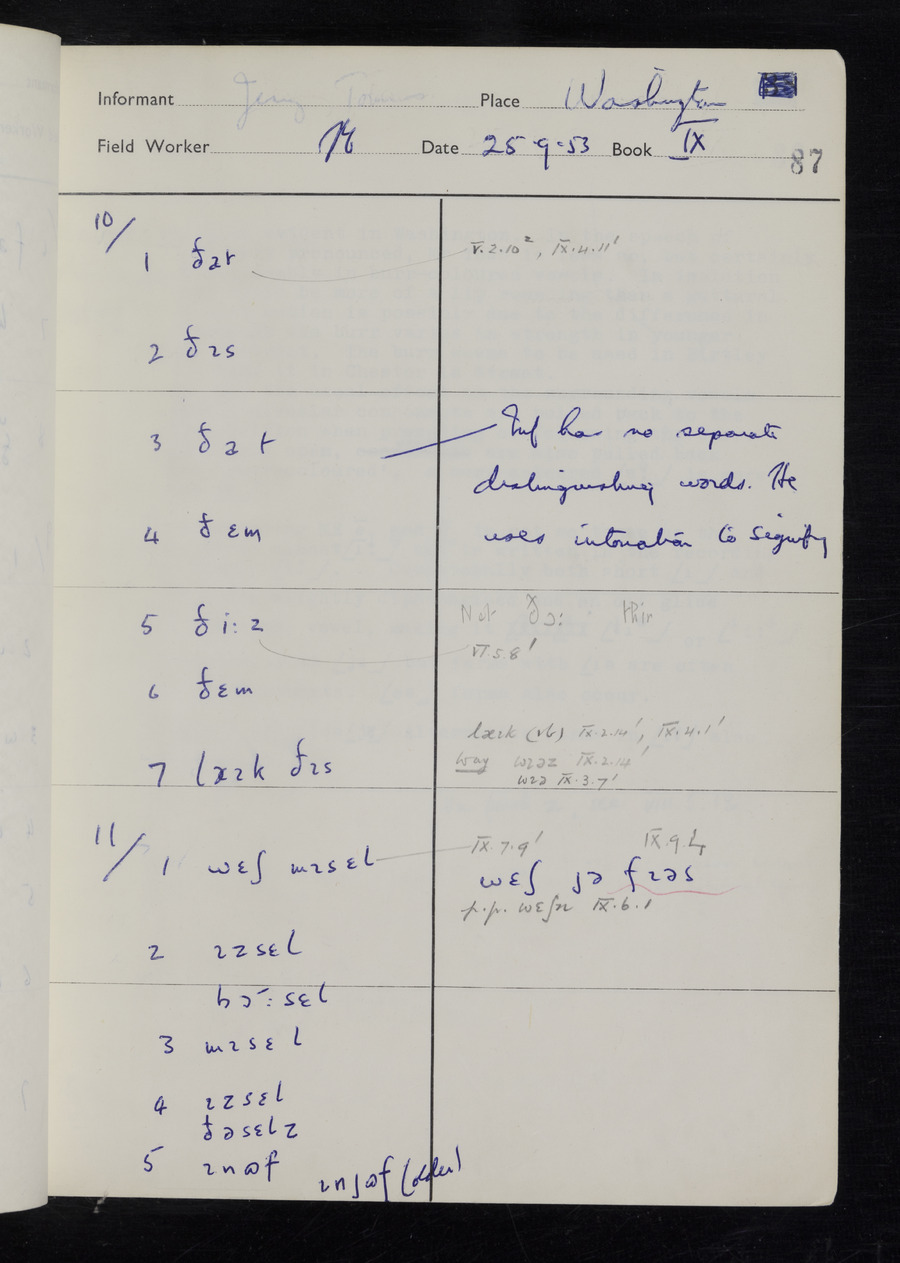 Informant Place Washington
Field Worker Date 25·9·53 Book IX
87
10/
1 ðat V.2.10², IX.4.11'
2 ðɪs
3 ðat Inf has no separate
distinguishing words. He
4 ðɛm uses intonation to signify
5 ði:z Not ðɔ: thir
VI.5.8'
6 ðɛm
læɪk (vb) IX.2.14', IX.4.1'
7 læɪk ðɪs way wɪəz IX.2.14'
wɪə IX.3.7'
11/
1 wɛʃ mɪsɛl IX.7.9' IX.9.4
wɛʃ jə fɪəs
p.p. wɛʃn IX.6.1
2 ɪzsɛl
hɔ:sɛl
3 mɪsɛl
4 ɪzsɛl
ðəsɛlz
5 ɪnɷf ɪnjɷf (older)